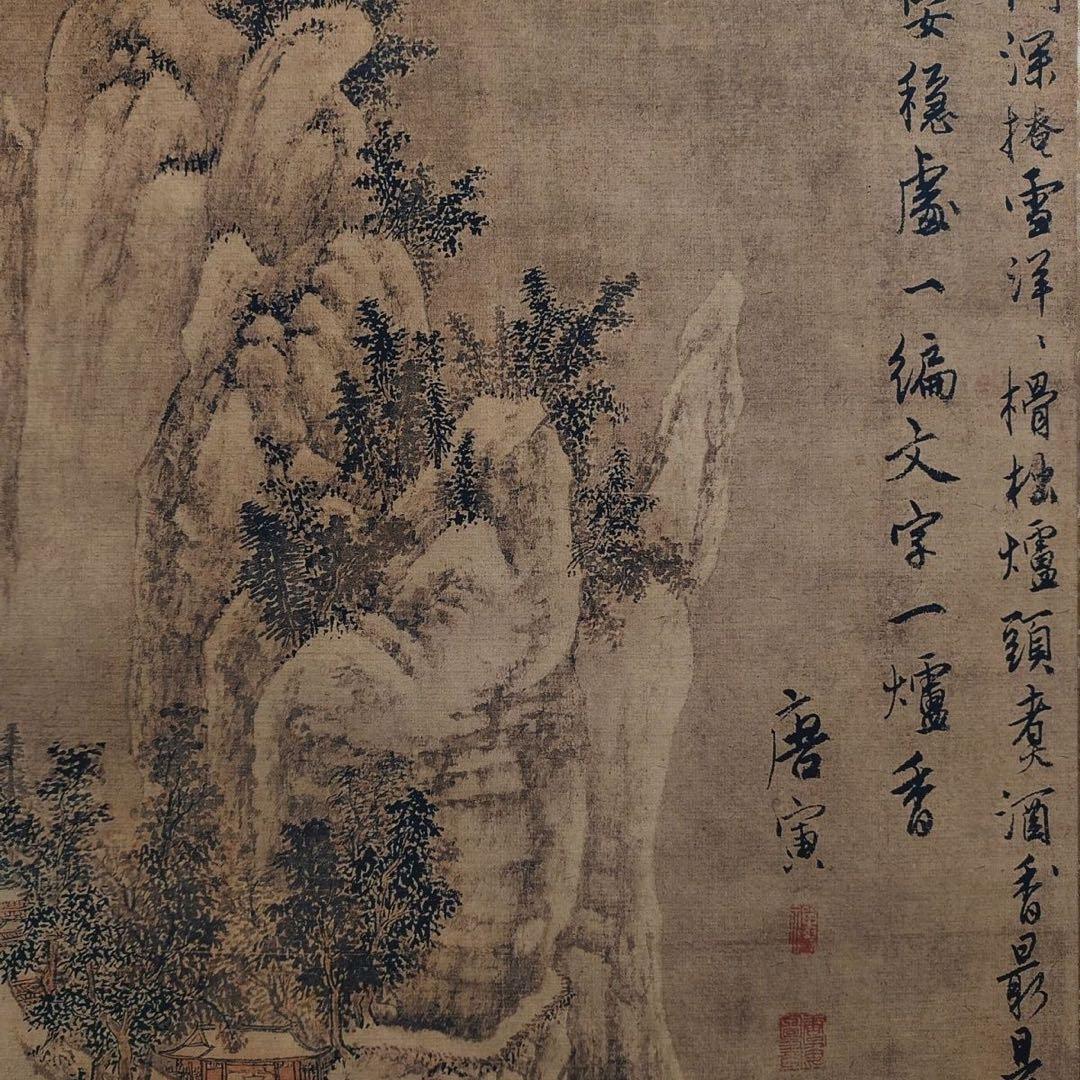 深掩雪洋、榾柮爐頭煮酒香最是
安穩處一編文字一爐香
唐寅